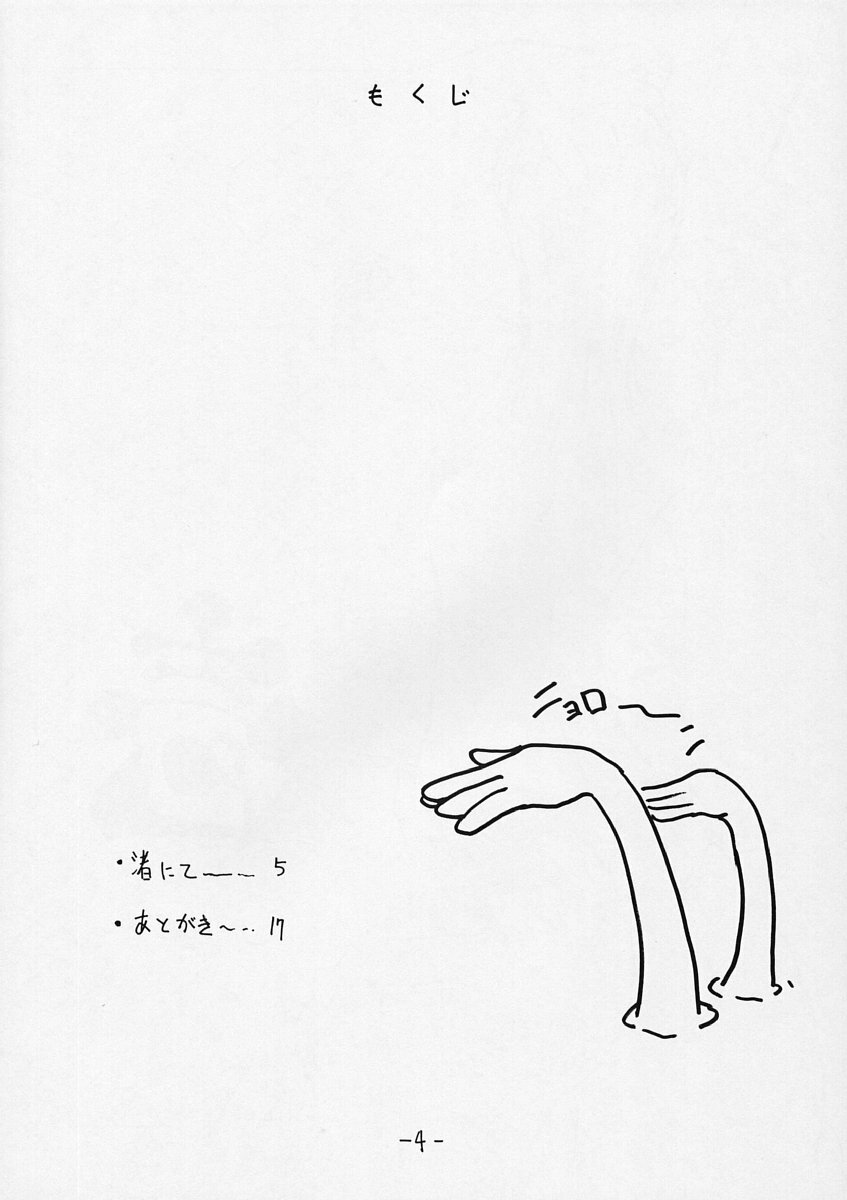 もくじ
ニョロ〜
・渚にて 5
・あとがき〜‥ 17
-4-